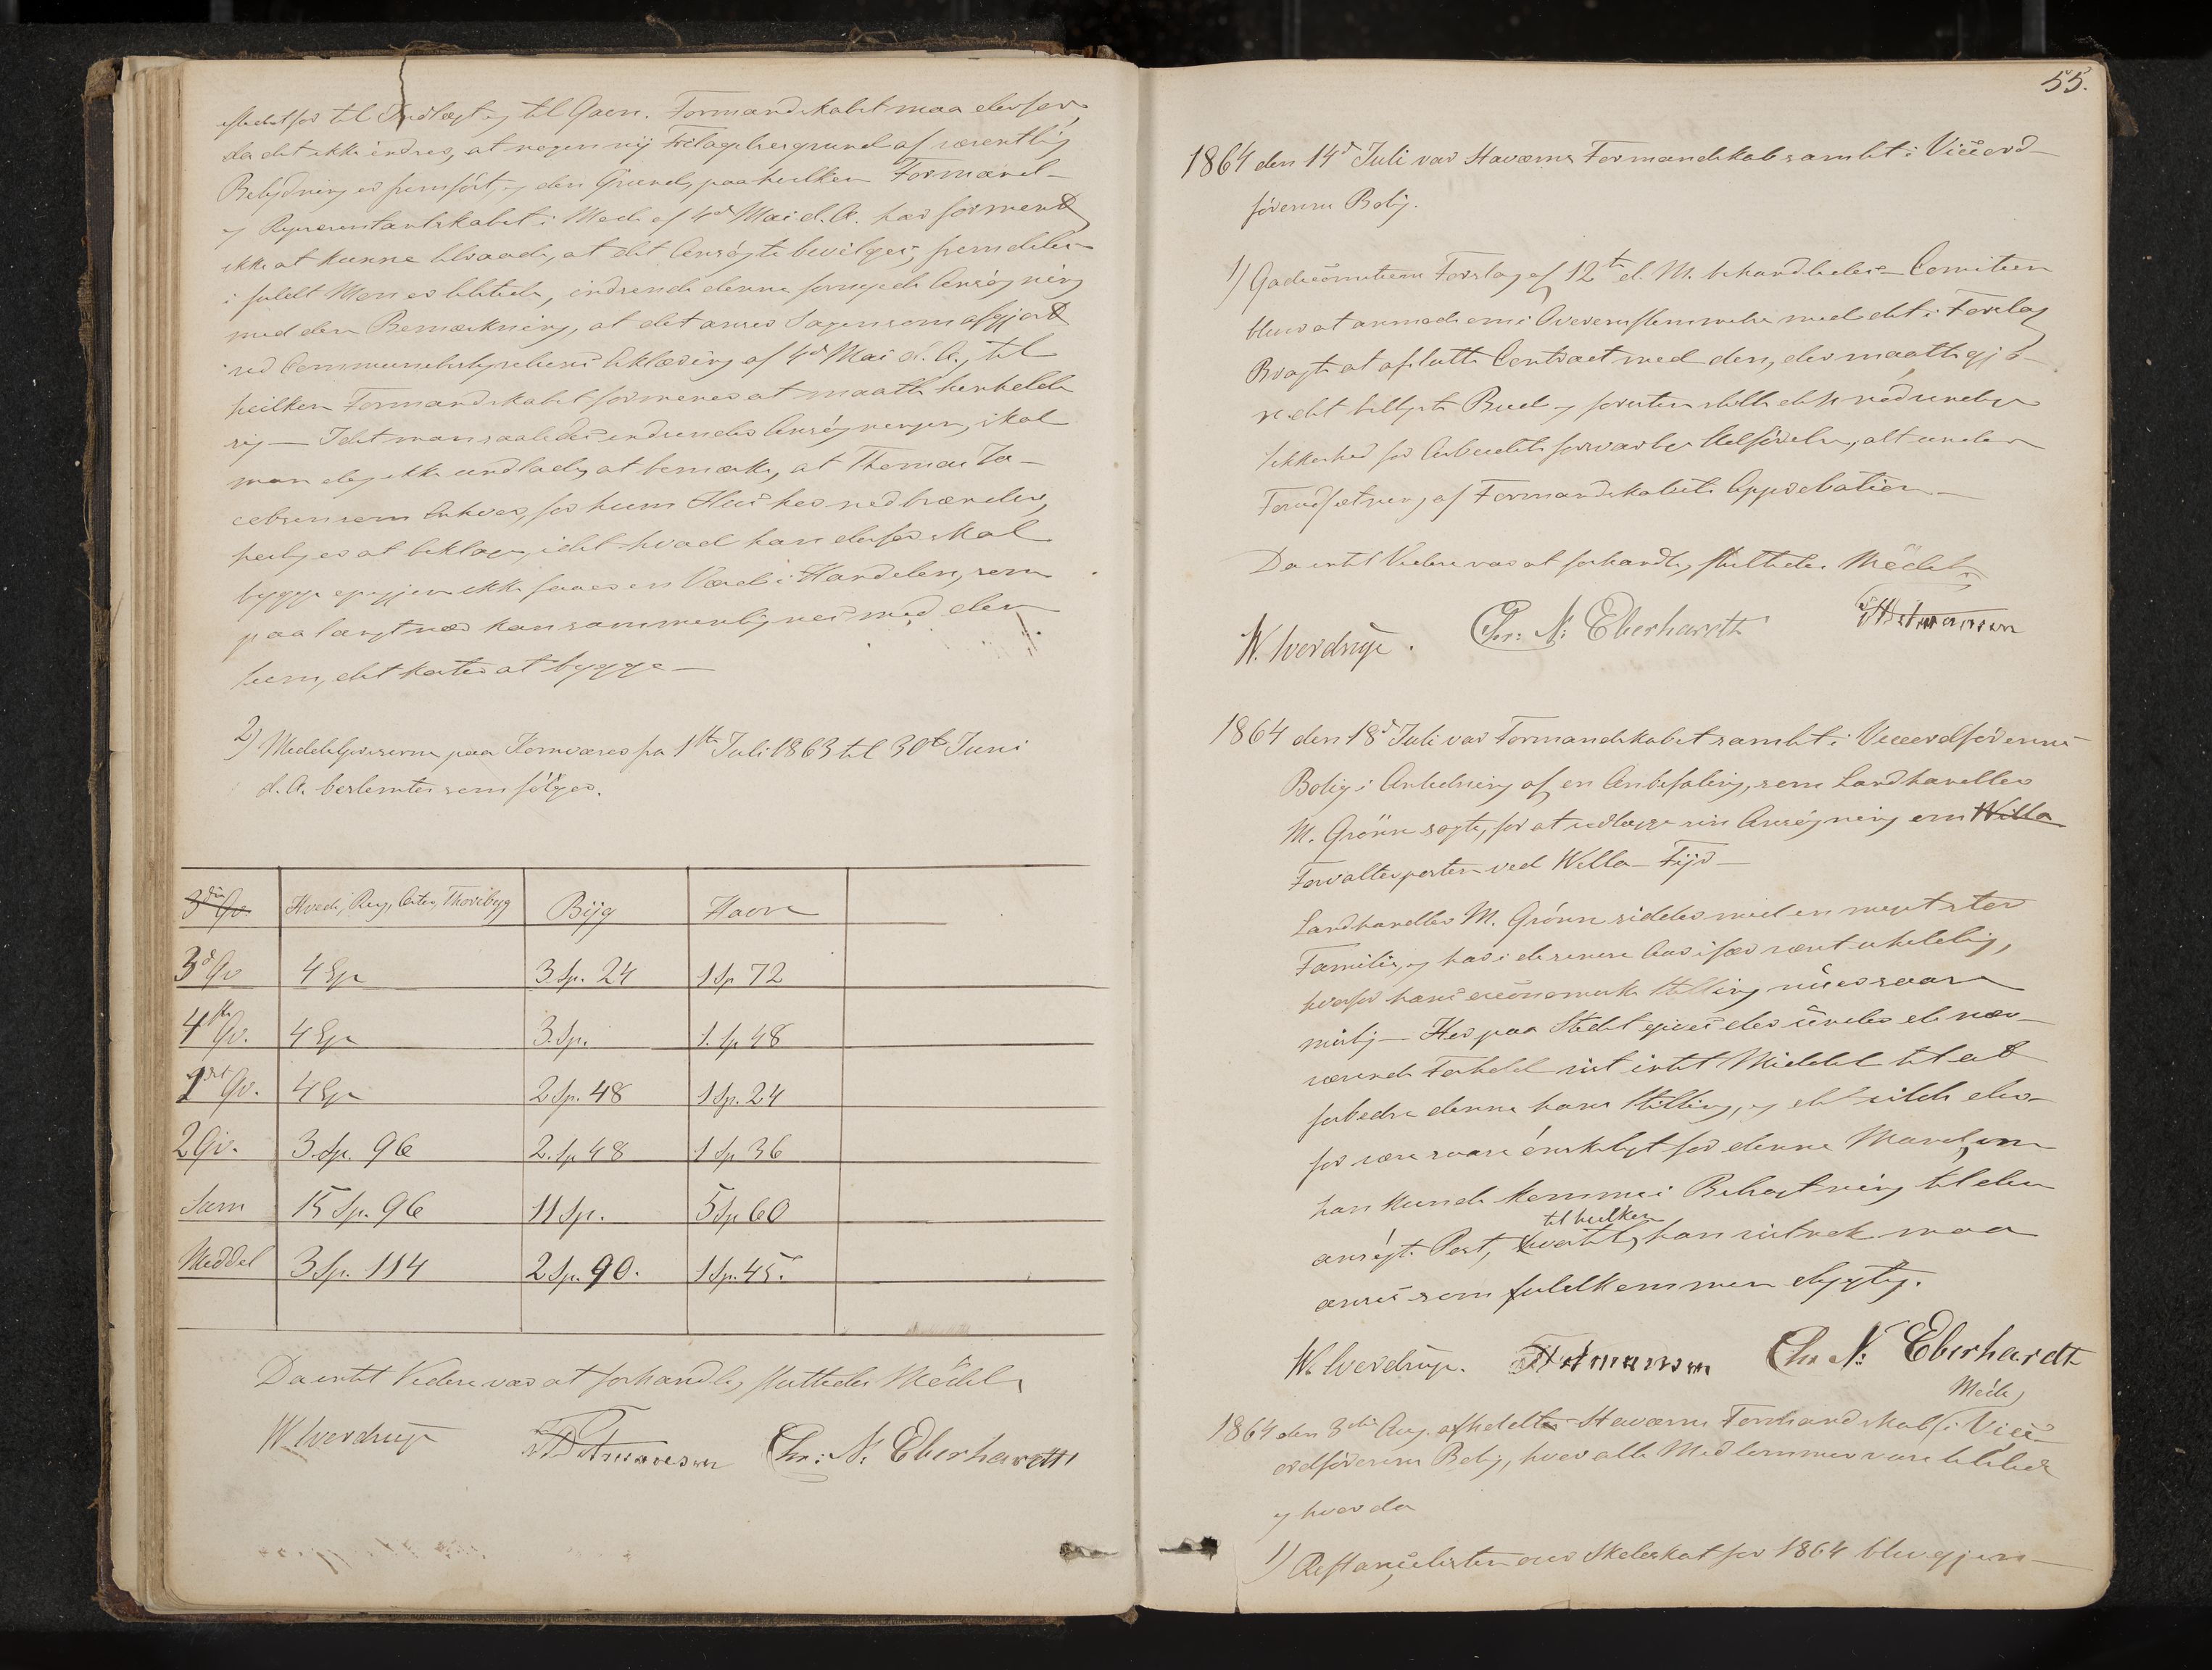 til Indtægt og til Gavn. Formandskabet maa derfor,
da det ikke indsees, at nogen ny Fritagelsesgrund af væsentlig
Betydning er fremført, og den Grund, paa hvilken Formand-
og Repræsentantskabet i Møde af 4de Mai d. A. har forment
ikke at kunne tilraade, at det Ansøgte bevilges, fremdeles
i fuldt Mon er tilstede, indsende denne fornyede Ansøgning
med den Bemærkning, at det anser Sagen som afgjort
ved Communebestyrelsens Erklæring af 4de Mai d. A., til
hvilken Formandskabet formener at maatte henholde
sig — Idet man saaledes indsender Ansøgningen, skal
man dog ikke undlade, at bemærke, at Thomas Ja-
cobsen som Enhver, for hvem Huse her nedbrænder,
heelig er at beklage, idet hvad han derfor skal
bygge op igjen ikke faaer en Værdi i Handelen, som
paa langt nær kan sammenlignes med den
Sum, det koster at bygge —
2) Middelpriserne paa Kornvarer fra 1ste Juli 1863 til 30te Juni
d. A. bestemtes som følger.
3die Qv. Hvede, Rug, Erter, Thoresbyg Byg Havre
3d Qv 4 Sp 3 Sp. 24 1 Sp 72
4de Qv. 4 Sp 3. Sp. 1. Sp 48
1st Qv. 4 Sp 2 Sp. 48 1 Sp. 24
2 Qv. 3. Sp. 96 2. Sp 48 1 Sp 36
Sum 15 Sp. 96 11 Sp. 5 Sp 60
Middel 3 Sp. 114 2 Sp. 90. 1 Sp. 45.
Da intet Videre var at forhandle, sluttedes Mødet
W Sverdrup Chr: N: Eberhardt
55.
1864 den 14d Juli var Staværns Formandskab samlet i Viceord-
førerens Bolig.
1) Gadecomiteens Forslag af 12te d. M. behandledes — Comiteen
blev at anmode om i Overensstemmelse med det i Forslag
Bragte at afslutte Contract med den, der maatte gjø-
re det billigste Bud og foruden stille det nødvendige
Sikkerhed for Arbeidets forsvarlige Udførelse, alt under
Forudsætning af Formandskabets Approbation —
Da intet Videre var at forhandle, sluttedes Mødet
W. Sverdrup. Chr: N: Eberhardt
1864 den 18d Juli var Formandskabet samlet i Viceordførerens
Bolig i Anledning af en Anbefaling, som Landhandler
M. Grönn søgte, for at vedlægge sin Ansøgning om Willa
Forvalterposten ved Willa-Fyr —
Landhandler M. Grönn sidder med en meget stor
Familie, og har i de senere Aar især været uheldig,
hvorfor hans oeconomiske Stilling nu er saare
mislig — Her paa Stedet gives der under de nær-
værende Forhold vist intet Middel til at
forbedre denne hans Stilling, og det vilde der-
for være saare ønskeligt for denne Mand, om
han kunde komme i Betragtning til den
ansøgte Post, hvortil til hvilken han vistnok maa
ansees som fuldkommen dygtig.
W. Sverdrup. Chr N: Eberhardt
Møde,
1864 den 3die Aug. afholdtes Staværns Formandskab i Vice-
ordførerens Bolig, hvor alle Medlemmer vare tilstede
og hvor da
1) Restanselisten over Skoleskat for 1864 blev gjen-